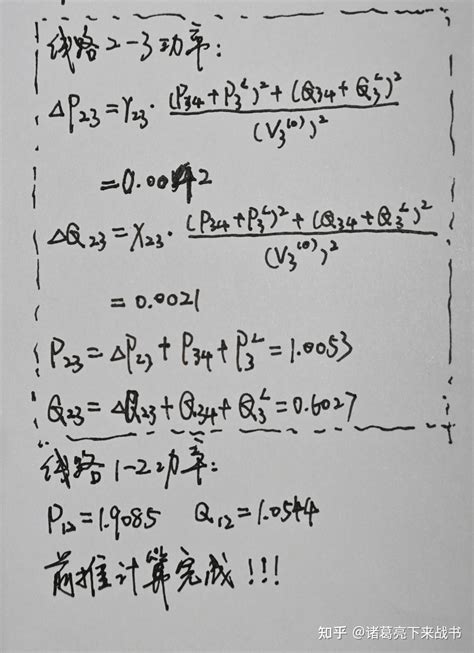 线路2-3功率:
ΔP23=r23·((P34+P3^L)^2+(Q34+Q3^L)^2)/(V3^(0))^2
=0.0042
ΔQ23=X23·((P34+P3^L)^2+(Q34+Q3^L)^2)/(V3^(0))^2
=0.0021
P23=ΔP23+P34+P3^L=1.0053
Q23=ΔQ23+Q34+Q3^L=0.6027
线路1-2功率:
P12=1.9085 Q12=1.0544
前推计算完成!!!
知乎 @诸葛亮下来战书